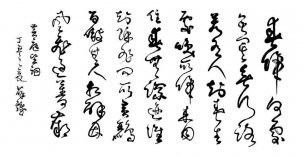 春归何处
寂寞无行路
若有人知春去
处唤取归来同
住春无踪迹谁
知除非问取黄鹂
百啭无人能解因
风飞过蔷薇
黄庭坚词